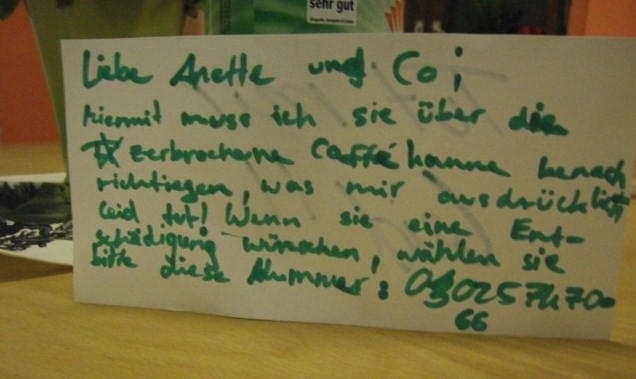 sehr gut
Liebe Anette und Co;
hiermit muss ich sie über die
zerbrochene Caffékanne benach
richtiegen, was mir ausdrücklich
Leid tut! Wenn sie eine Ent-
schädigung wünschen, wählen sie
bitte diese Nummer:
66